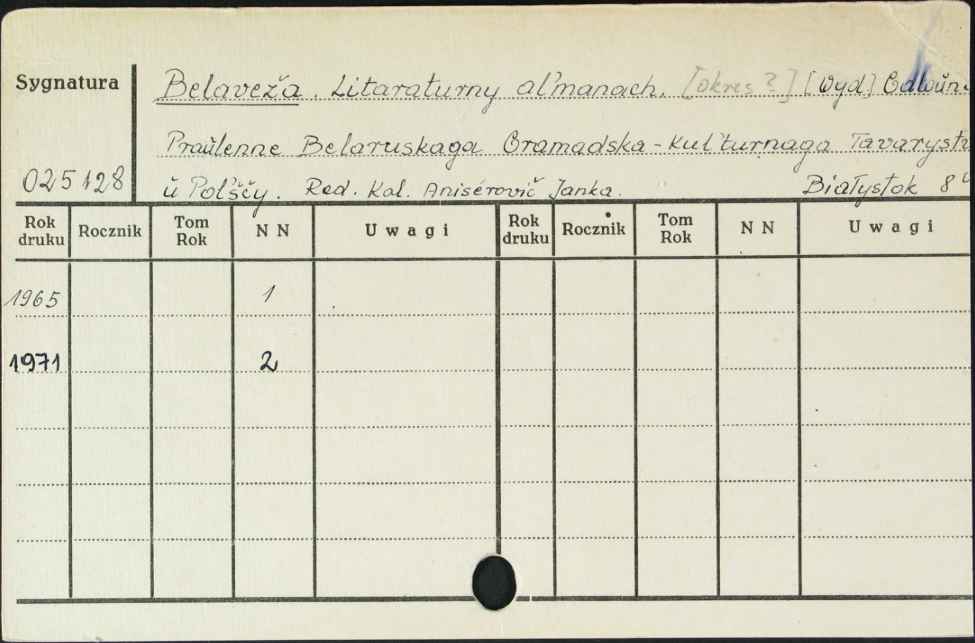 Sygnatura
Belaveža. Litaraturny al'manach. [okres?] [Wyd]
Praŭlenne Belaruskaga Gramadska-kul'turnaga Tavarystv
025128
ŭ Pol'ščy. Red. Kal. Anisérovič Janka. Białystok 8°
Rok druku Rocznik Tom Rok NN Uwagi Rok druku Rocznik Tom Rok NN Uwagi
1965 1
1971 2